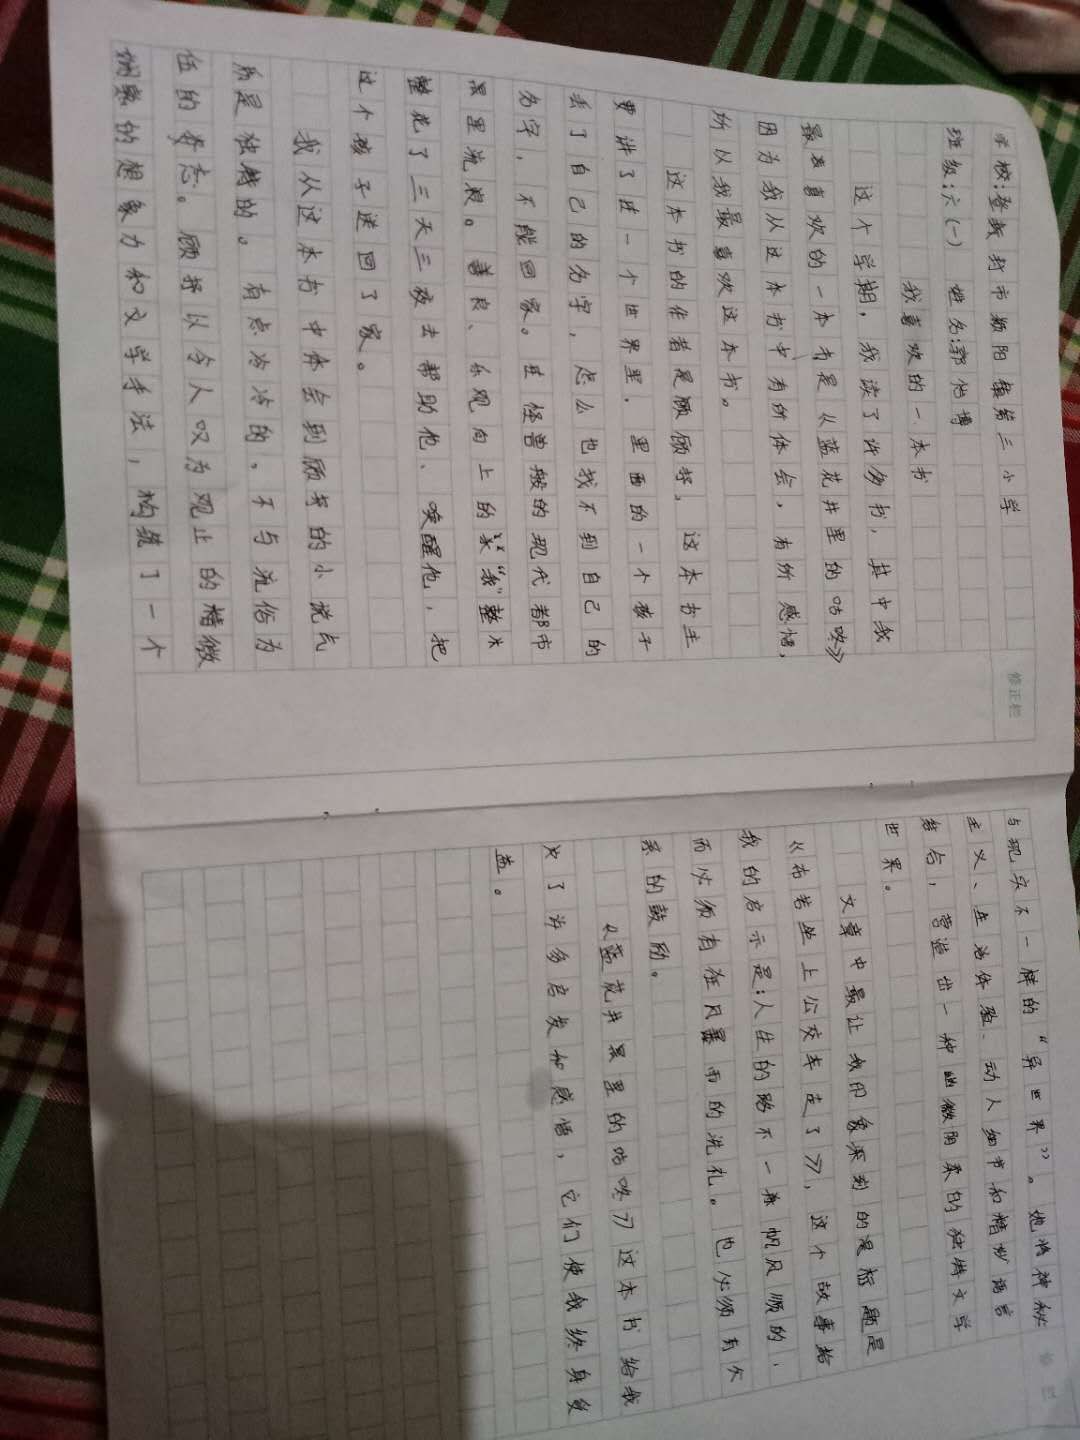 学校:登封市颖阳镇第三小学
班级:六(一) 姓名:郭
我喜欢的一本书
这个学期，我读了许多书，其中我
最喜欢的一本书是《蓝花井里的咕咚》
因为我从这本书中有所体会，有所感悟，
所以我最喜欢这本书。
这本书的作者是顾抒，这本书主
要讲了在一个世界里，里面的一个孩子
丢了自己的名字，怎么也找不到自己的
名字，不能回家。在怪兽般的现代都市
里流浪。善良、乐观向上的“我”整
整花了三天三夜去帮助他、唤醒他，把
这个孩子送回了家。
我从这本书中体会到顾抒的小说气
质是独特的。有点冷冷的，不与流俗为
伍的姿态。顾抒以令人叹为观止的精微
的想象力和文学手法，构筑了一个
与现实不一样的“异世界”。她将神秘
主义、生活体验、动人细节和精妙语言
结合，营造出一种幽微阴柔的独特文学
世界。
文章中最让我印象深刻的是标题是
《布若坐上公交车走了》，这个故事给
我的启示是:人生的路不一在帆风顺的，
而必须有狂风暴雨的洗礼。也必须有
系的鼓励。
《蓝花井里的咕咚》这本书给我
了许多启发和感悟，它们使我终身受
益。
修正栏